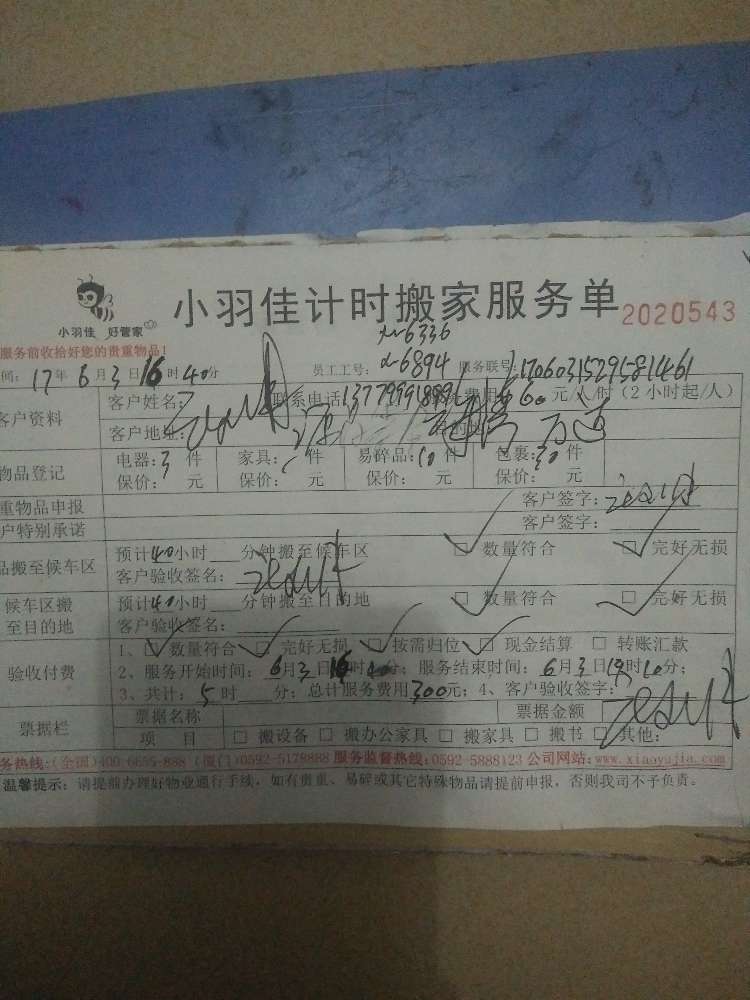 小羽佳 好管家
小羽佳计时搬家服务单 2020543
服务前收拾好您的贵重物品!
员工工号: 6336 6894 服务联号:
间: 17年6月3日16时40分
客户资料 客户姓名: 联系电话 费用:60元/人/时(2小时起/人)
客户地址:
物品登记 电器:3件 家具: 件 易碎品:10件 包裹:30件
保价: 元 保价: 元 保价: 元 保价: 元
重物品申报 客户签字:
户特别承诺 客户签字:
品搬至候车区 预计40小时 分钟搬至候车区 □ 数量符合 □ 完好无损
客户验收签名:
候车区搬至目的地 预计40小时 分钟搬至目的地 □ 数量符合 □ 完好无损
客户验收签名:
验收付费 1、□ 数量符合 □ 完好无损 □ 按需归位 □ 现金结算 □ 转账汇款
2、服务开始时间: 6月3日16时40分; 服务结束时间: 6月3日19时10分;
3、共计: 5时 分; 总计服务费用300元; 4、客户验收签字:
票据栏 票据名称 票据金额
项 目 □ 搬设备 □ 搬办公家具 □ 搬家具 □ 搬书 □ 其他:
务热线:(全国)400-6655-888 (厦门)0592-5179888 服务监督热线:0592-5888123 公司网站:www.xiaoyujia.com
温馨提示: 请提前办理好物业通行手续，如有贵重、易碎或其它特殊物品请提前申报，否则我司不予负责。